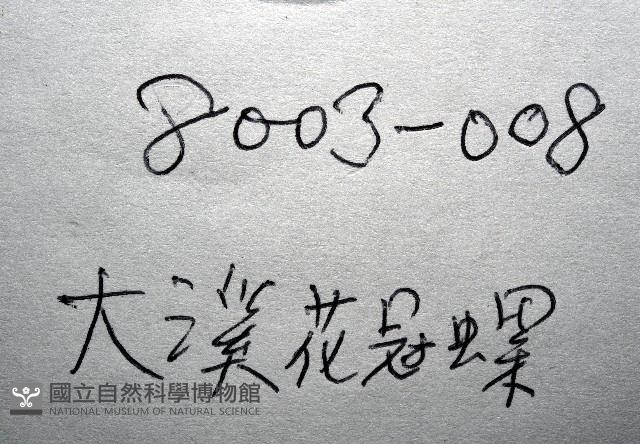 8003-008
大溪花冠螺
國立自然科學博物館
NATIONAL MUSEUM OF NATURAL SCIENCE